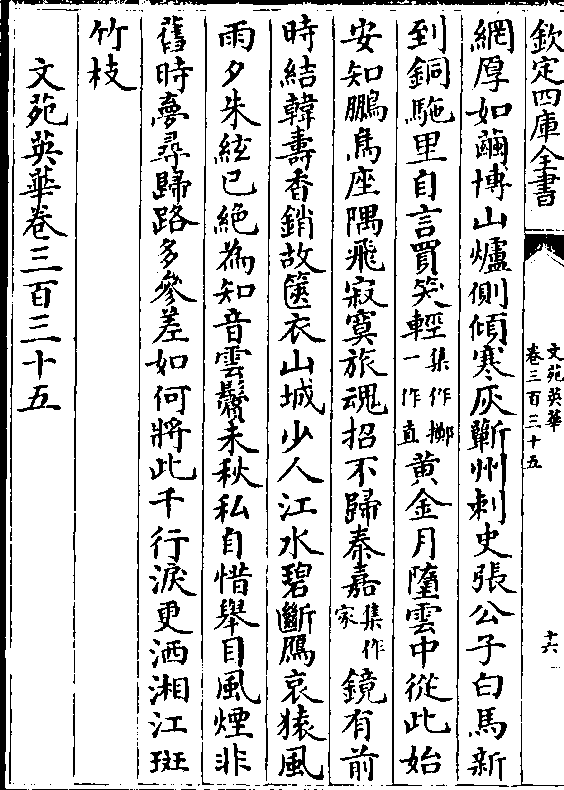 欽定四庫全書
文苑英華
卷三百三十五
十六
網厚如繭博山爐側傾寒灰蘄州刺史張公子白馬新
到銅駞里自言買笑輕集作擲一作直黄金月墮雲中從此始
安知鵬鳥座隅飛寂寞旅魂招不歸秦嘉集作家鏡有前
時結韓壽香銷故篋衣山城少人江水碧斷鴈哀猿風
雨夕朱絃已絶為知音雲鬢未秋私自惜舉目風煙非
舊時夢尋歸路多參差如何將此千行淚更洒湘江斑
竹枝
文苑英華卷三百三十五